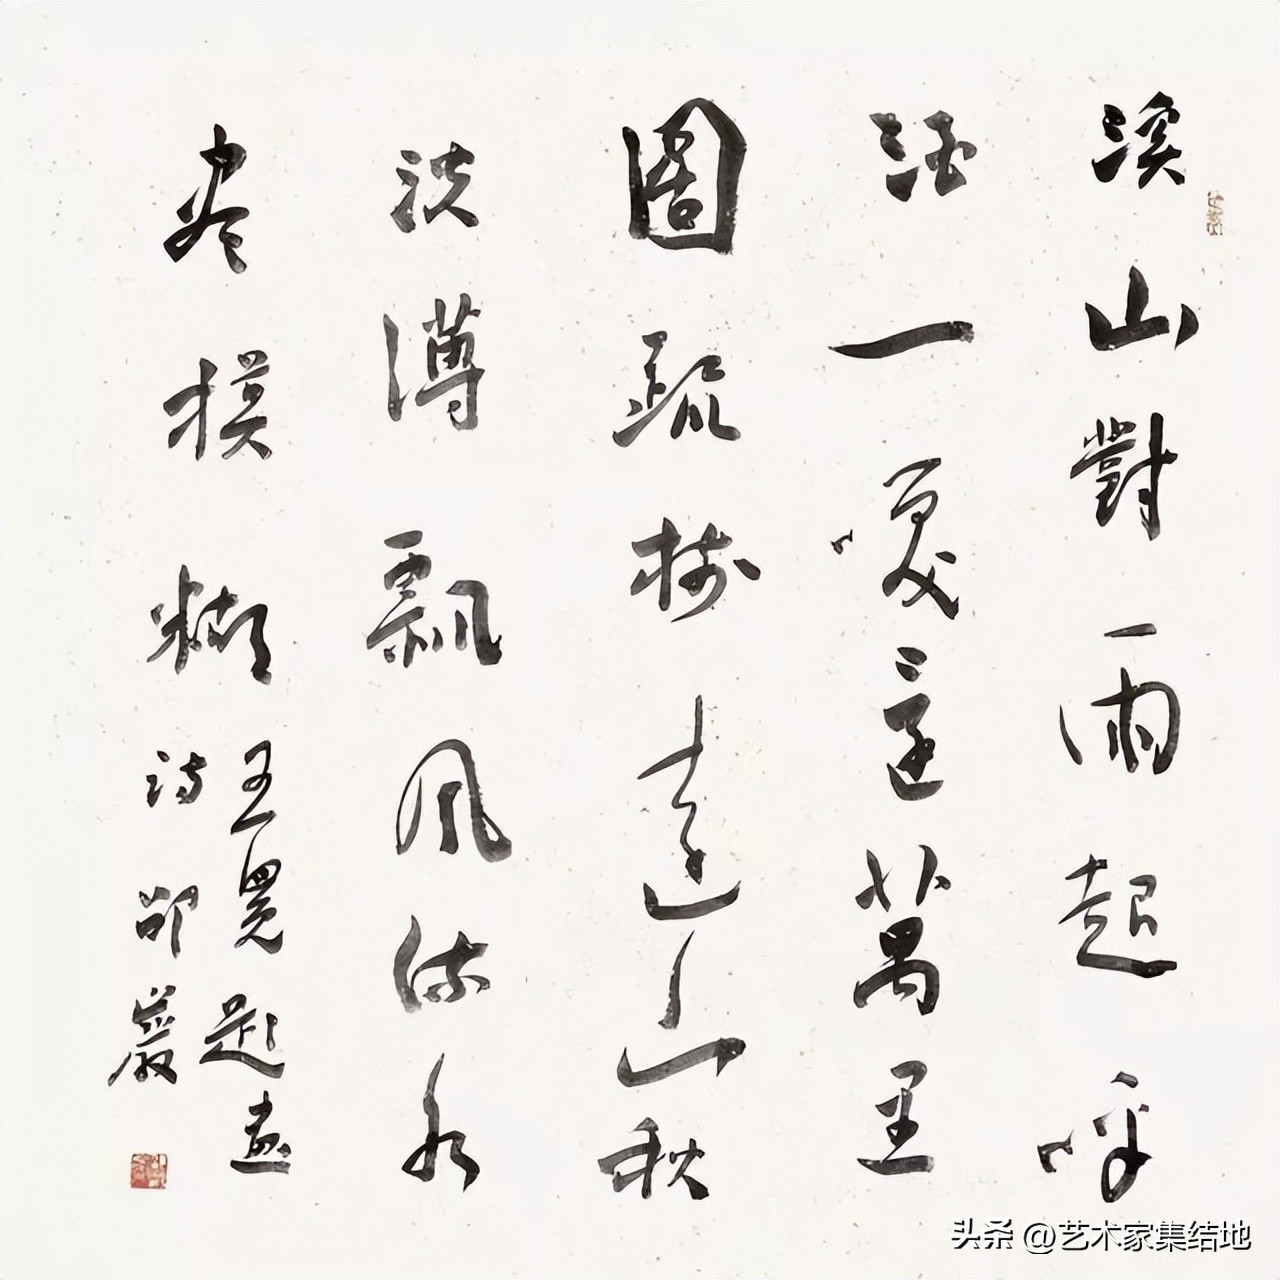 溪山對雨起呼
酒一萬里
圖疏樹遠山秋
淡薄飄風流水
盡模糊
王冕題畫
詩邵巖
头条 @艺术家集结地